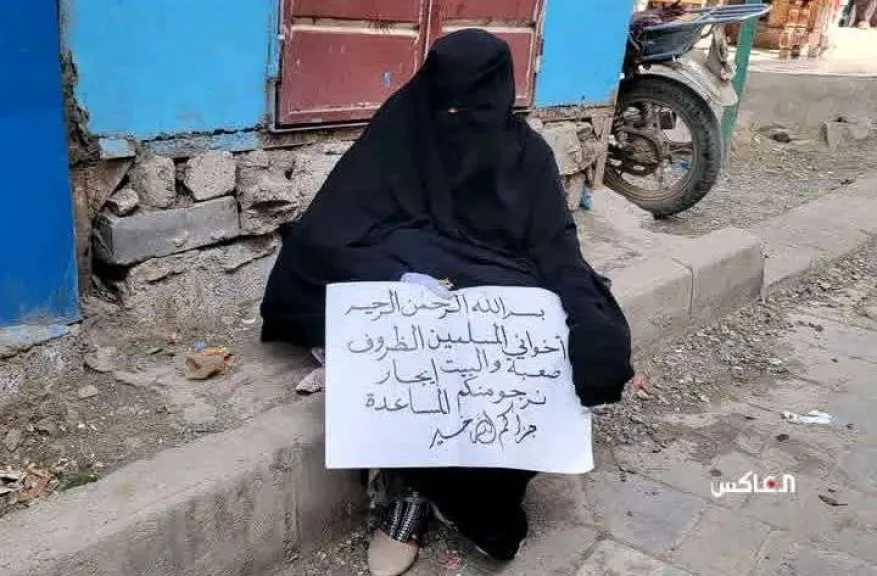 بسم الله الرحمن الرحيم
أخواني المسلمين الظروف
صعبة والبيت إيجار
نرجو منكم المساعدة
جزاكم الله خير
العاكس